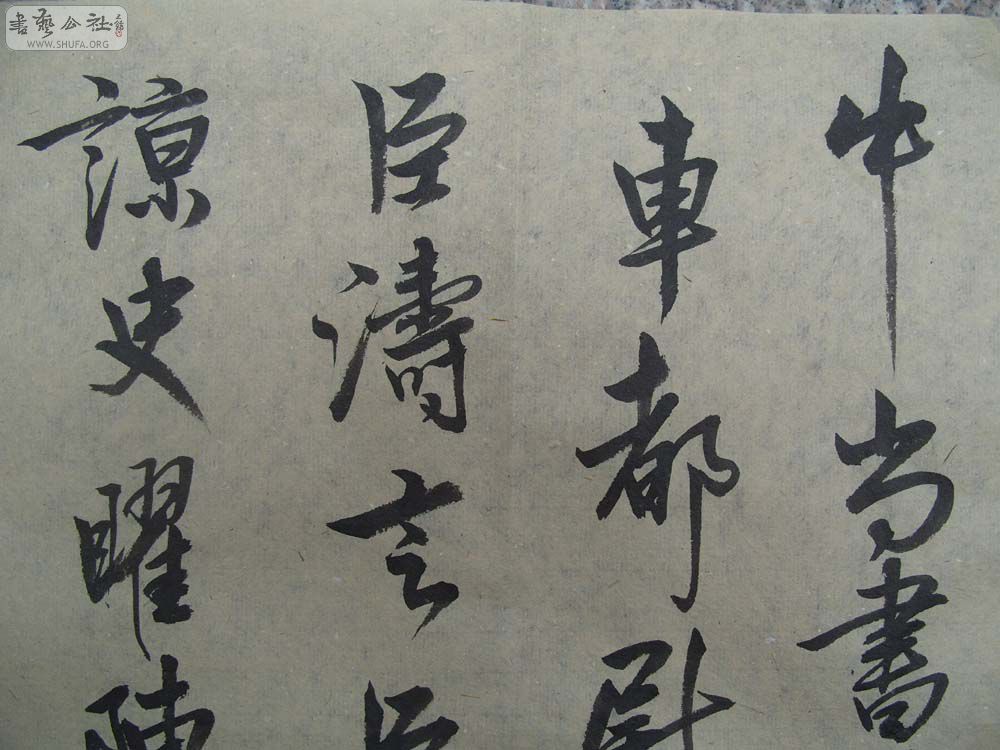 牛尚書
車都尉
臣濤言臣
諒史曜陳
書藝公社
WWW.SHUFA.ORG